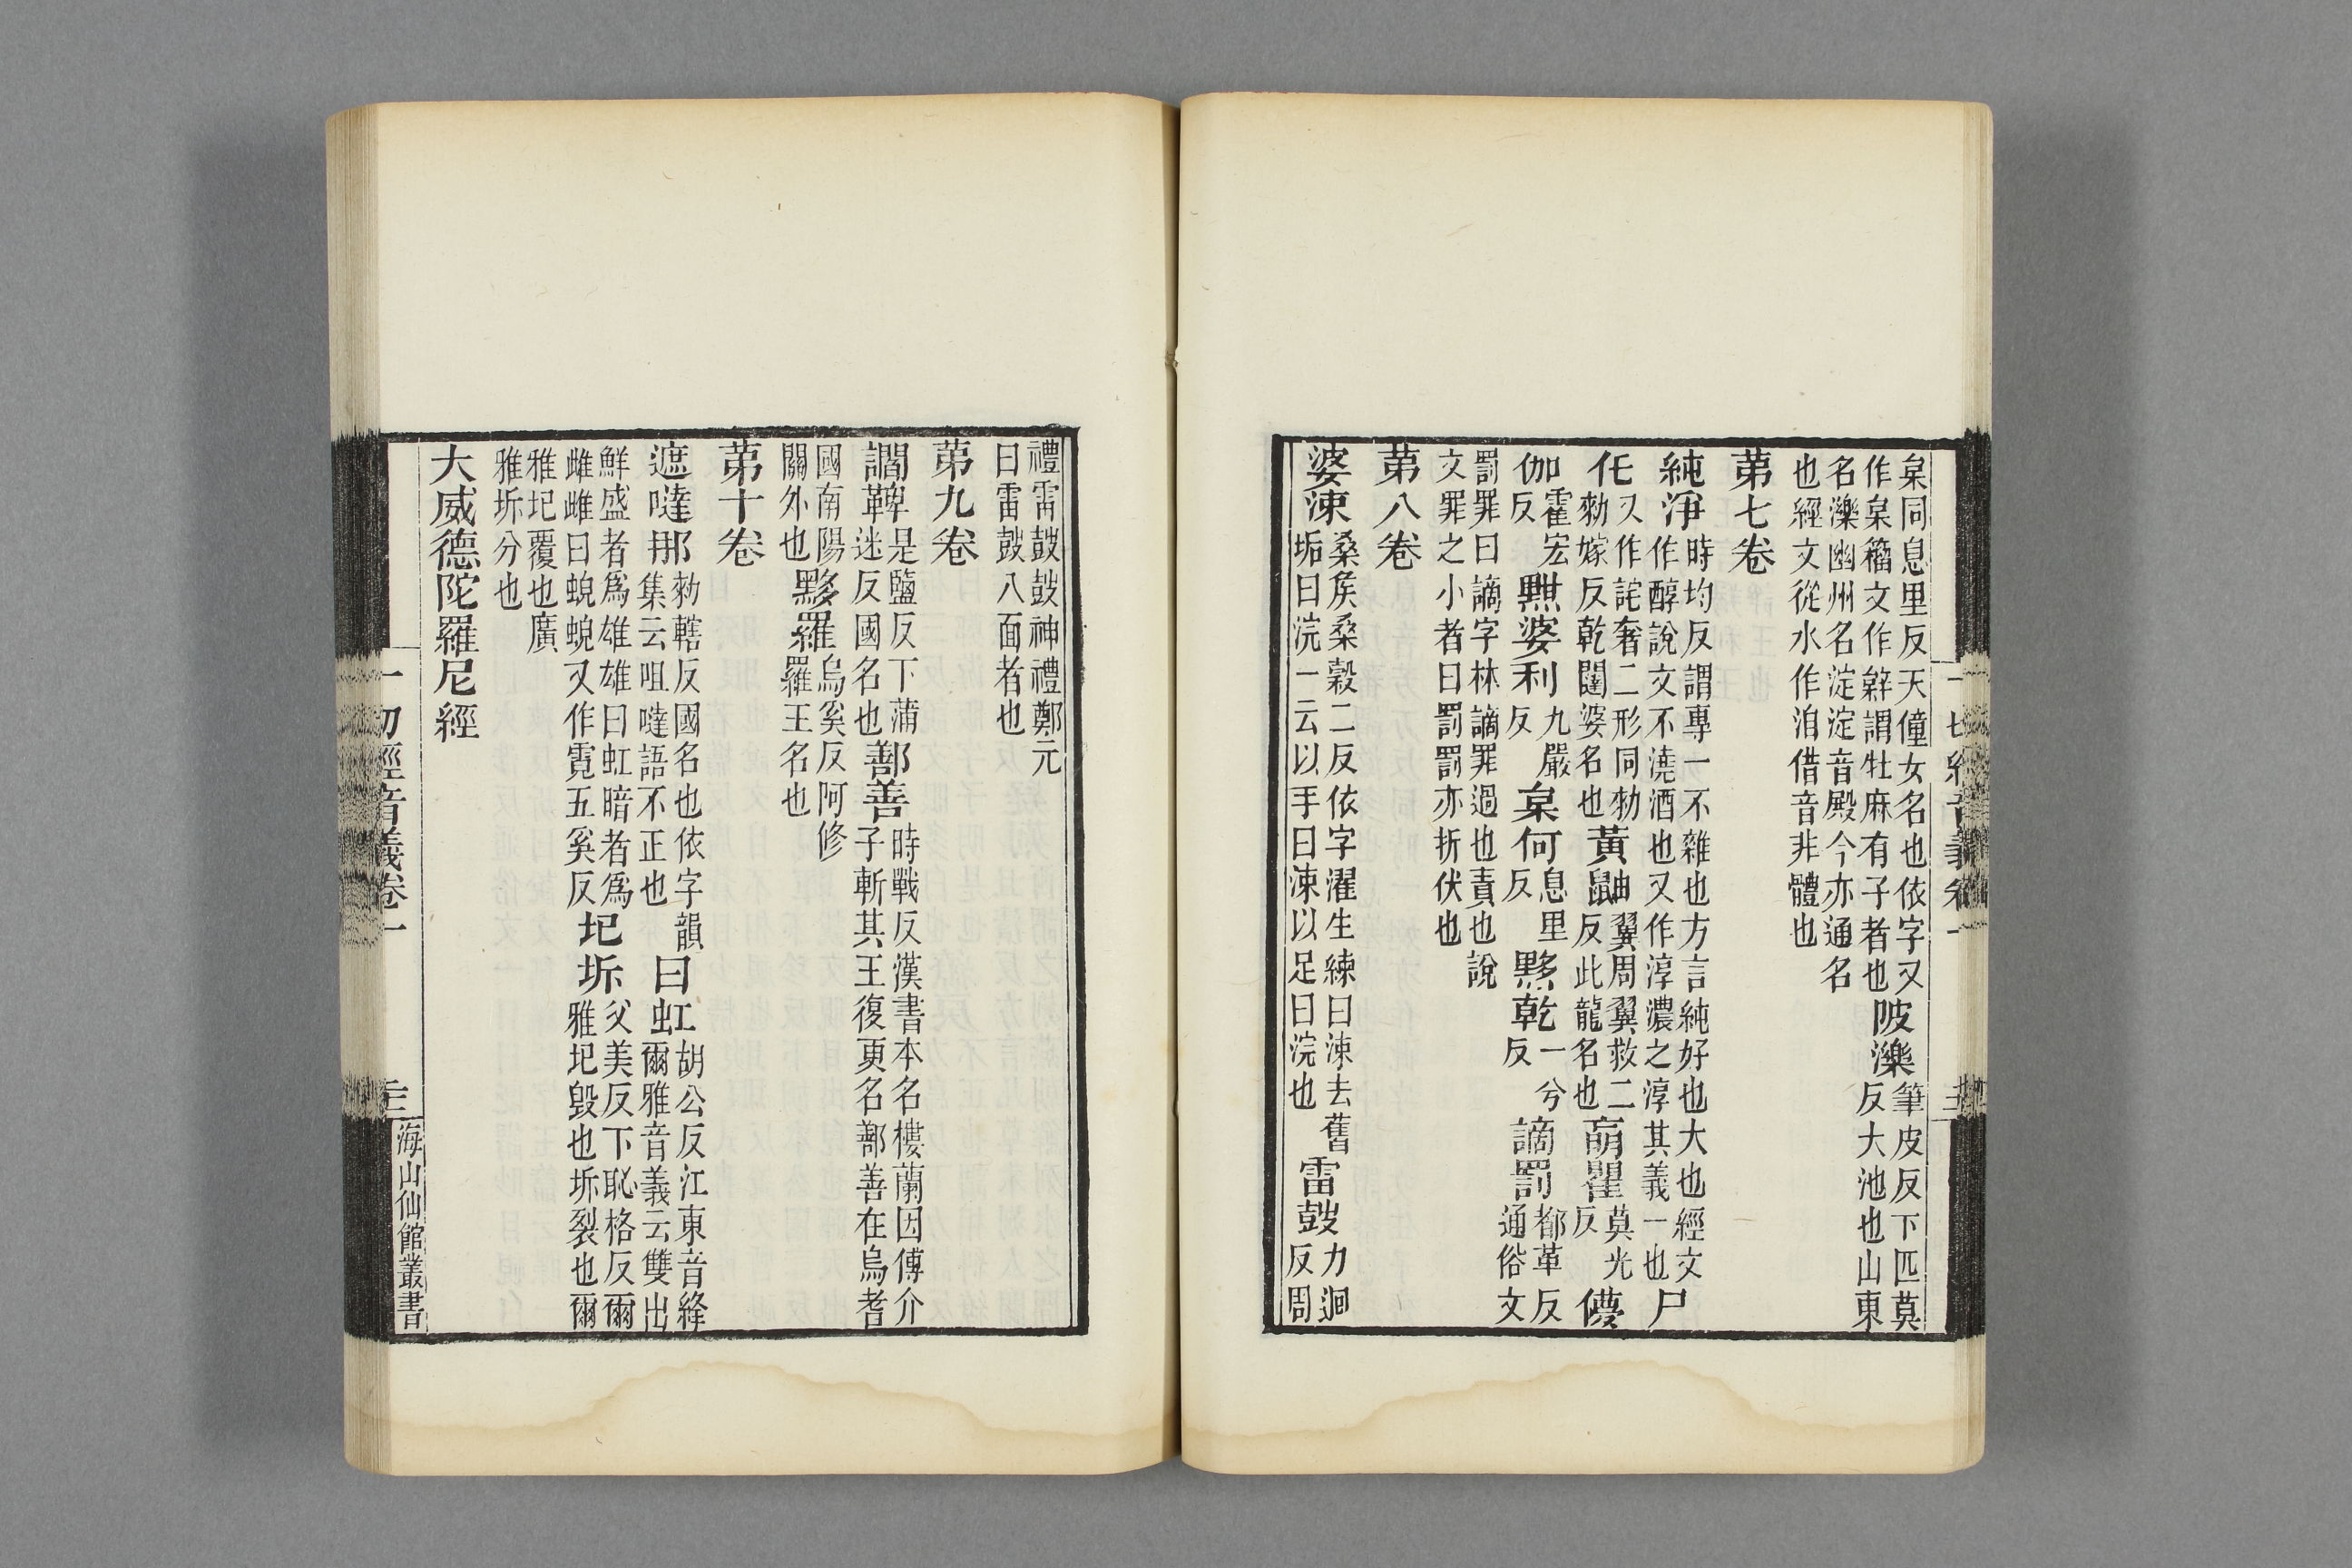 枲同息里反天僮女名也依字又作枲籀文作辪謂牡麻有子者也陂濼筆皮反下匹莫反大池也山東
名濼幽州名淀淀音殿今亦通名也經文從水作洎借音非體也
第七卷
純淨時均反謂專一不雜也方言純好也大也經文作醇說文不澆酒也又作淳濃之淳其義一也尸
仛又作詫奢二形同勑勑嫁反乾闥婆名也黃鼬翼周翼救二反此龍名也瞿莫光反儚
伽霍宏反黮婆利九嚴反枲何息里反黟乾一兮反讁罰都革反通俗文
罰罪曰讁字林讁罪過也責也說文罪之小者曰罰罰亦折伏也
第八卷
婆涑桑矦桑穀二反依字濯生練曰涑去舊垢曰浣一云以手曰涑以足曰浣也雷鼓力迴反周
禮雷鼓鼓神禮鄭元曰雷鼓八面者也
第九卷
讇鞞是鹽反下蒲迷反國名也鄯善時戰反漢書本名樓蘭因傅介子斬其王復更名鄯善在烏耆
國南陽關外也黟羅烏奚反阿修羅王名也
第十卷
遮噠那勑轄反國名也依字韻集云咀噠語不正也曰虹胡公反江東音絳爾雅音義云雙出
鮮盛者爲雄雄曰虹暗者爲雌雌曰蜺蜺又作霓五奚反圮坼父美反下恥格反爾雅圮毀也坼裂也爾
雅圮覆也廣雅坼分也
大威德陀羅尼經
一切經音義卷一
海山仙館叢書